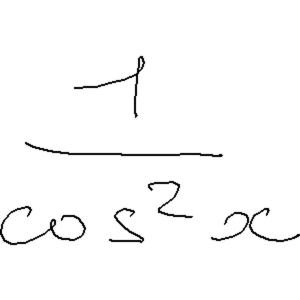 1
cos²x